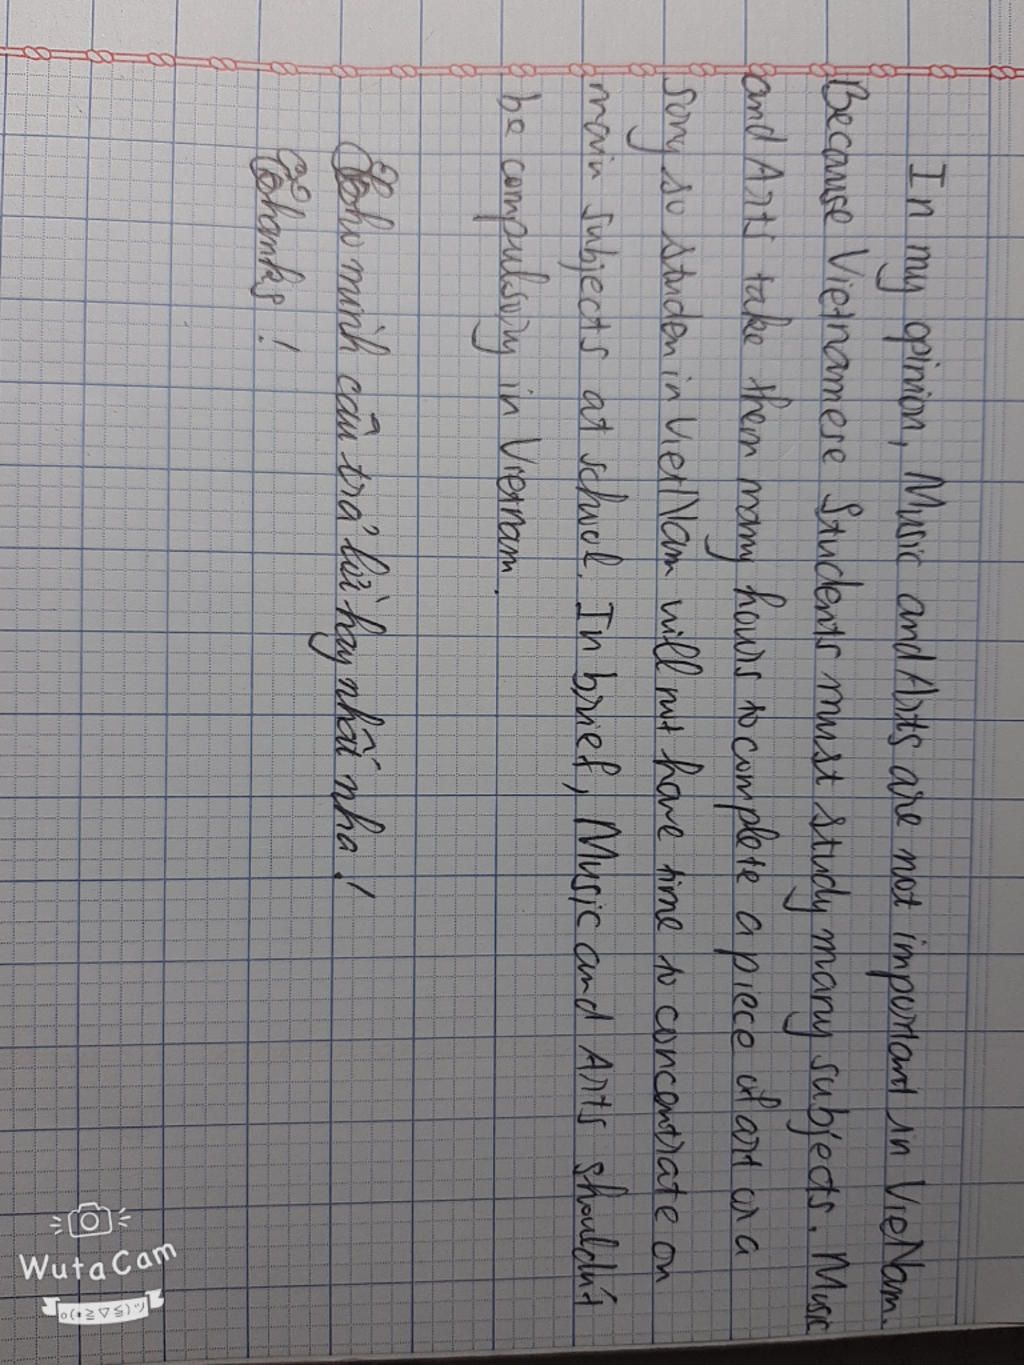 In my opinion, Music and Arts are not important in VieNam.
Because Vietnamese Students must study many subjects. Music
and Arts take them many hours to complete a piece of art or a
song so studen in VietNam will not have time to concentrate on
main subjects at school. In brief, Music and Arts shouldn't
be compulsory in Vietnam.
Cho mình câu trả lời hay nhất nha!
Thanks!
WutaCam